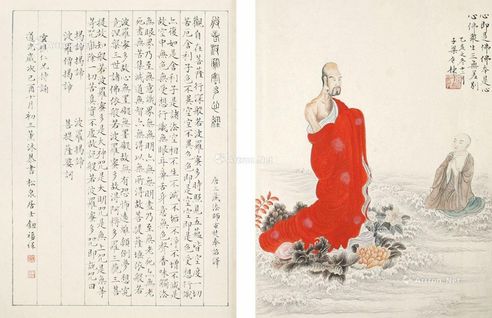 心即是佛佛本是心
心佛眾生三無差別
般若波羅蜜多心經
唐三藏法師玄奘奉詔譯
觀自在菩薩行深般若波羅蜜多時照見五蘊皆空度一切
苦厄舍利子色不異空空不異色色即是空空即是色受想行識
亦復如是舍利子是諸法空相不生不滅不垢不淨不增不減是
故空中無色無受想行識無眼耳鼻舌身意無色聲香味觸法
無眼界乃至無意識界無無明亦無無明盡乃至無老死亦無老
死盡無苦集滅道無智亦無得以無所得故菩提薩埵依般若
波羅蜜多故心無罣礙無罣礙故無有恐怖遠離顛倒夢想究竟
涅槃三世諸佛依般若波羅蜜多故得阿耨多羅三藐三菩
提故知般若波羅蜜多是大神咒是大明咒是無上咒是無等
等咒能除一切苦真實不虛故說般若波羅蜜多咒即說咒曰
揭諦揭諦 波羅揭諦
波羅僧揭諦 菩提薩婆訶
仁兄持誦
道光歲次己酉十月初 沐恭書 松泉居士鈕福保
Artron.Net